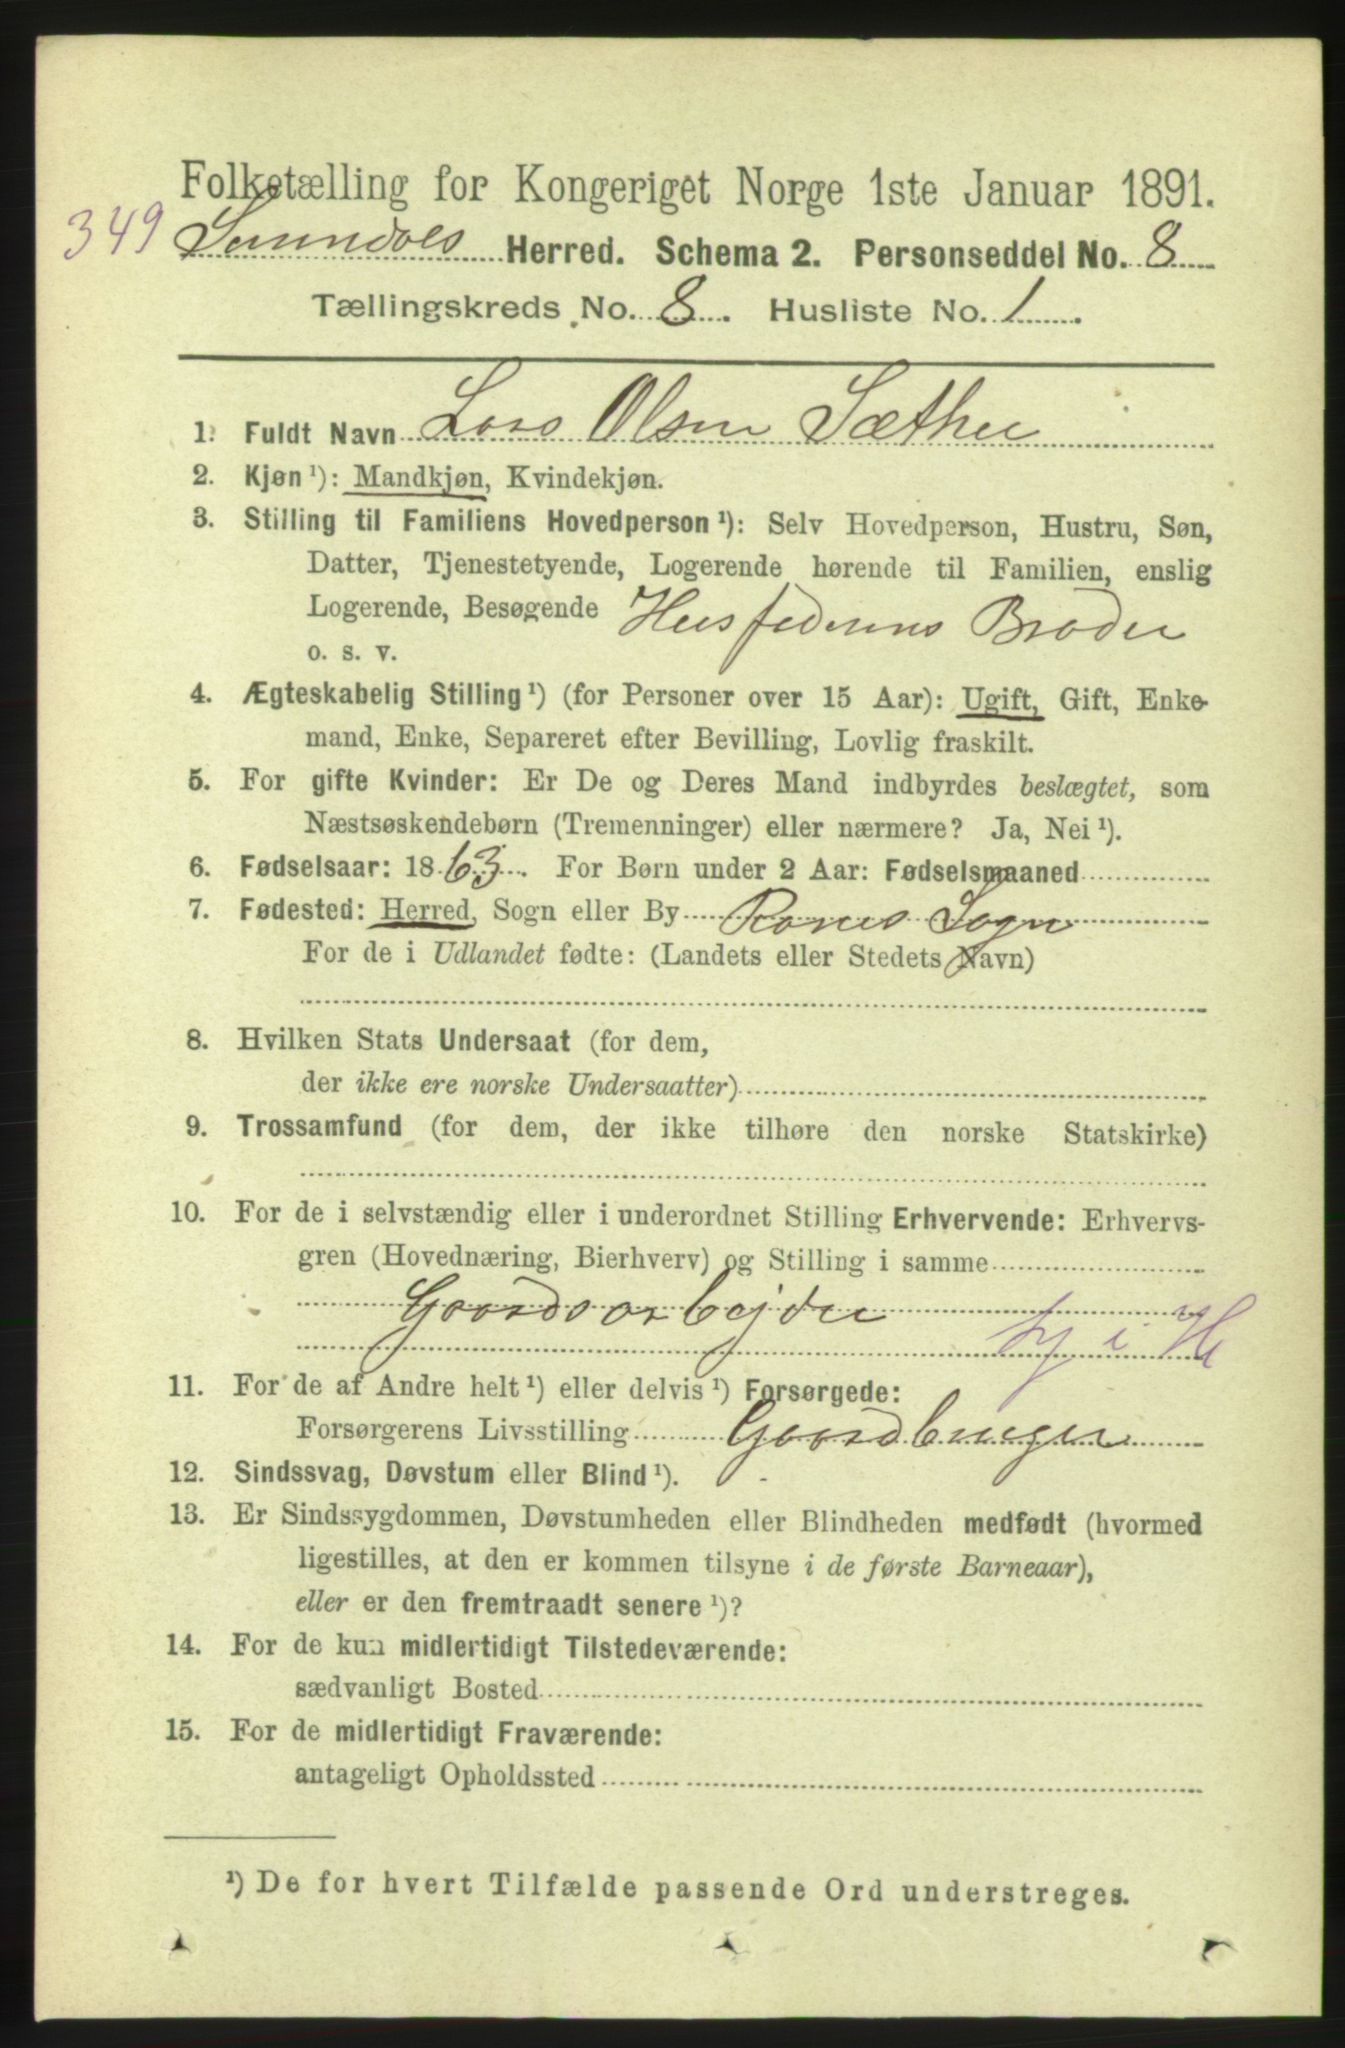 Folketælling for Kongeriget Norge 1ste Januar 1891.
349 Sunndals Herred. Schema 2. Personseddel No. 8
Tællingskreds No. 8. Husliste No. 1.
1. Fuldt Navn Lars Olsen Sæther
2. Kjøn ¹): Mandkjøn, Kvindekjøn.
3. Stilling til Familiens Hovedperson ¹): Selv Hovedperson, Hustru, Søn,
Datter, Tjenestetyende, Logerende hørende til Familien, enslig
Logerende, Besøgende Husfaderens Broder
o. s. v.
4. Ægteskabelig Stilling ¹) (for Personer over 15 Aar): Ugift, Gift, Enke-
mand, Enke, Separeret efter Bevilling, Lovlig fraskilt.
5. For gifte Kvinder: Er De og Deres Mand indbyrdes beslægtet, som
Næstsøskendebørn (Tremenninger) eller nærmere? Ja, Nei ¹).
6. Fødselsaar: 1863. For Børn under 2 Aar: Fødselsmaaned
7. Fødested: Herred, Sogn eller By Romes Sogn
For de i Udlandet fødte: (Landets eller Stedets Navn)
8. Hvilken Stats Undersaat (for dem,
der ikke ere norske Undersaatter)
9. Trossamfund (for dem, der ikke tilhøre den norske Statskirke)
10. For de i selvstændig eller i underordnet Stilling Erhvervende: Erhvervs-
gren (Hovednæring, Bierhverv) og Stilling i samme
Gaardsarbejder
Hj i H
11. For de af Andre helt ¹) eller delvis ¹) Forsørgede:
Forsørgerens Livsstilling Gaardbruger
12. Sindssvag, Døvstum eller Blind ¹).
13. Er Sindssygdommen, Døvstumheden eller Blindheden medfødt (hvormed
ligestilles, at den er kommen tilsyne i de første Barneaar),
eller er den fremtraadt senere ¹)?
14. For de kun midlertidigt Tilstedeværende:
sædvanligt Bosted
15. For de midlertidigt Fraværende:
antageligt Opholdssted
¹) De for hvert Tilfælde passende Ord understreges.